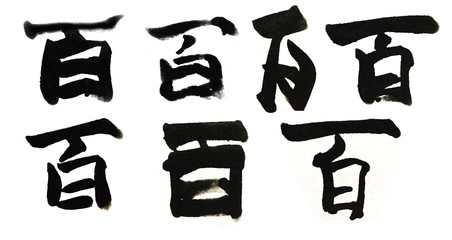 百百百百
百百百